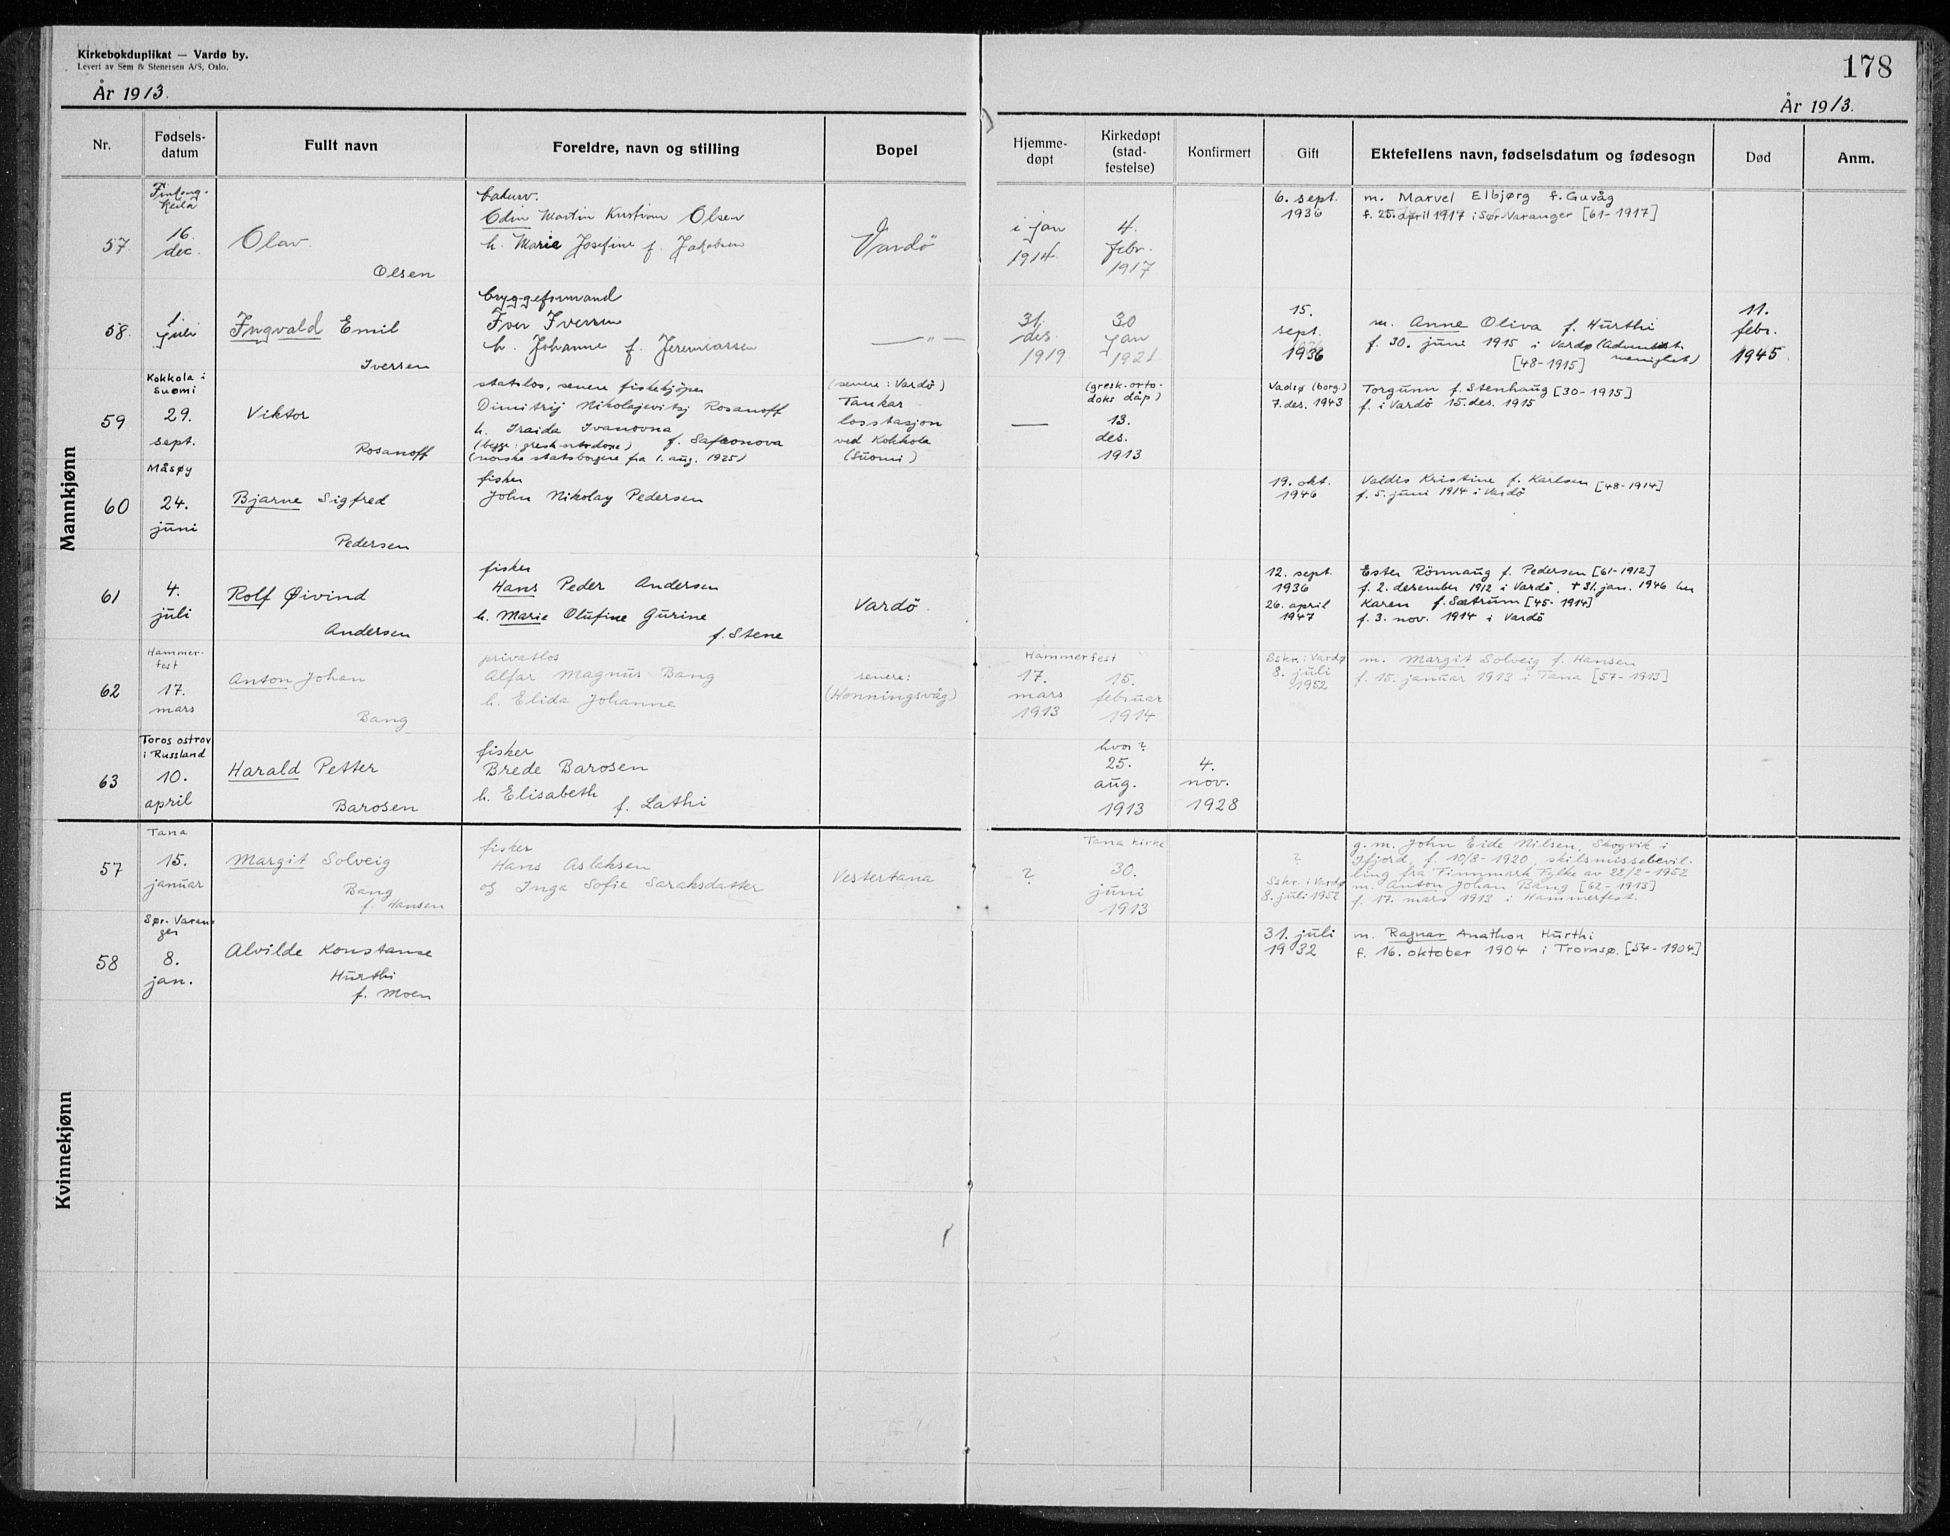 Kirkebokduplikat — Vardø by.
Levert av Sem & Stenersen A/S, Oslo.
År 1913.
178
År 1913.
Nr.
Fødsels-
datum
Fullt navn
Foreldre, navn og stilling
Bopel
Hjemme-
døpt
Kirkedøpt
(stad-
festelse)
Konfirmert
Gift
Ektefellens navn, fødselsdatum og fødesogn
Død
Anm.
Mannkjønn
57.
16.
dec.
Olav
Olsen
Odin Martin Kristian Olsen
h. Marie Josefine f. Jakobsen
Vardö
i jan
1914.
4.
febr.
1917
6. sept.
1936
m. Marvel Elbjørg f. Guvåg
f. 25. april 1917 i Sør-Varanger [61-1917]
58.
1.
juli
Ingvald Emil
Iversen
bryggeformand
Iver Iversen
h. Johanne f. Jeremiassen
— " —
31.
des.
1919
30
jan
1921
15.
sept.
1936
m. Anne Oliva f. Hurthi
f. 30. juni 1915 i Vardø (Adventist-
menighet)
[48-1915]
11.
febr.
1945.
59
Kokkola i
Suomi
29.
sept.
Viktor
Rosanoff
statsløs, senere fiskekjöper
Dimitrij Nikolajevitsj Rosanoff
h. Iraida Ivanovna
f. Safronova
(begge: gresk-ortodoxe)
(norske statsborgere fra 1. aug. 1925)
(senere: Vardö)
Tankar
losstasjon
ved Kokkola
(Suomi)
—
(gresk-orto-
doks dåp)
13.
des.
1913
Vadsø (borg.)
7. des. 1943
Torgunn f. Stenhaug [30-1915]
f. i Vardö 15. des. 1915
60
Måsøy
24.
juni
Bjarne Sigfred
Pedersen
fisker
John Nikolay Pedersen
19. okt.
1946
Valdis Kristine f. Karlsen [48-1914]
f. 5. juni 1914 i Vardö
61
4.
juli
Rolf Øivind
Andersen
fisker
Hans Peder Andersen
h. Marie Olufine Gurine
f. Stene
Vardö.
12. sept.
1936
26. april
1947
Ester Rönnaug f. Pedersen [61-1912]
f. 2. desember 1912 i Vardö. † 31. jan. 1946 her
Karen f. Sætrum [45-1914]
f. 3. nov. 1914 i Vardö
62
Hammer-
fest
17.
mars
Anton Johan
Bang
privatlos
Alfar Magnus Bang
h. Elida Johanne
senere:
(Honningsvåg)
Hammerfest
17.
mars
1913
15.
februar
1914
Sskr. i Vardø
8. juli
1952
m. Margit Solveig f. Hansen
f. 15. januar 1913 i Tana [57-1913]
63
Toros ostrov
i Russland
10.
april
Harald Petter
Barosen
fisker
Brede Barosen
h. Elisabeth
f. Lathi
hvor?
25.
aug.
1913
4.
nov.
1928
Kvinnekjønn
57
Tana
15.
januar
Margit Solveig
Bang
f. Hansen
fisker
Hans Aslaksen
og Inga Sofie Saraksdatter
Vestertana
?
Tana kirke
30.
juni
1913
?
Sskr. i Vardø
8. juli 1952
g. m. John Eide Nilsen, Skogvik i
Ifjord, f. 10/8-1920, skilsmissebevil-
ling fra Finnmark Fylke av 22/2-1952
m. Anton Johan Bang [62-1913]
f. 17. mars 1913 i Hammerfest.
58
Sør-Varan-
ger
8.
jan.
Alvilde Konstanse
Hurthi
f. Moen
31. juli
1932
m. Ragnar Anathon Hurthi
f. 16. oktober 1904 i Tromsø. [54-1904]